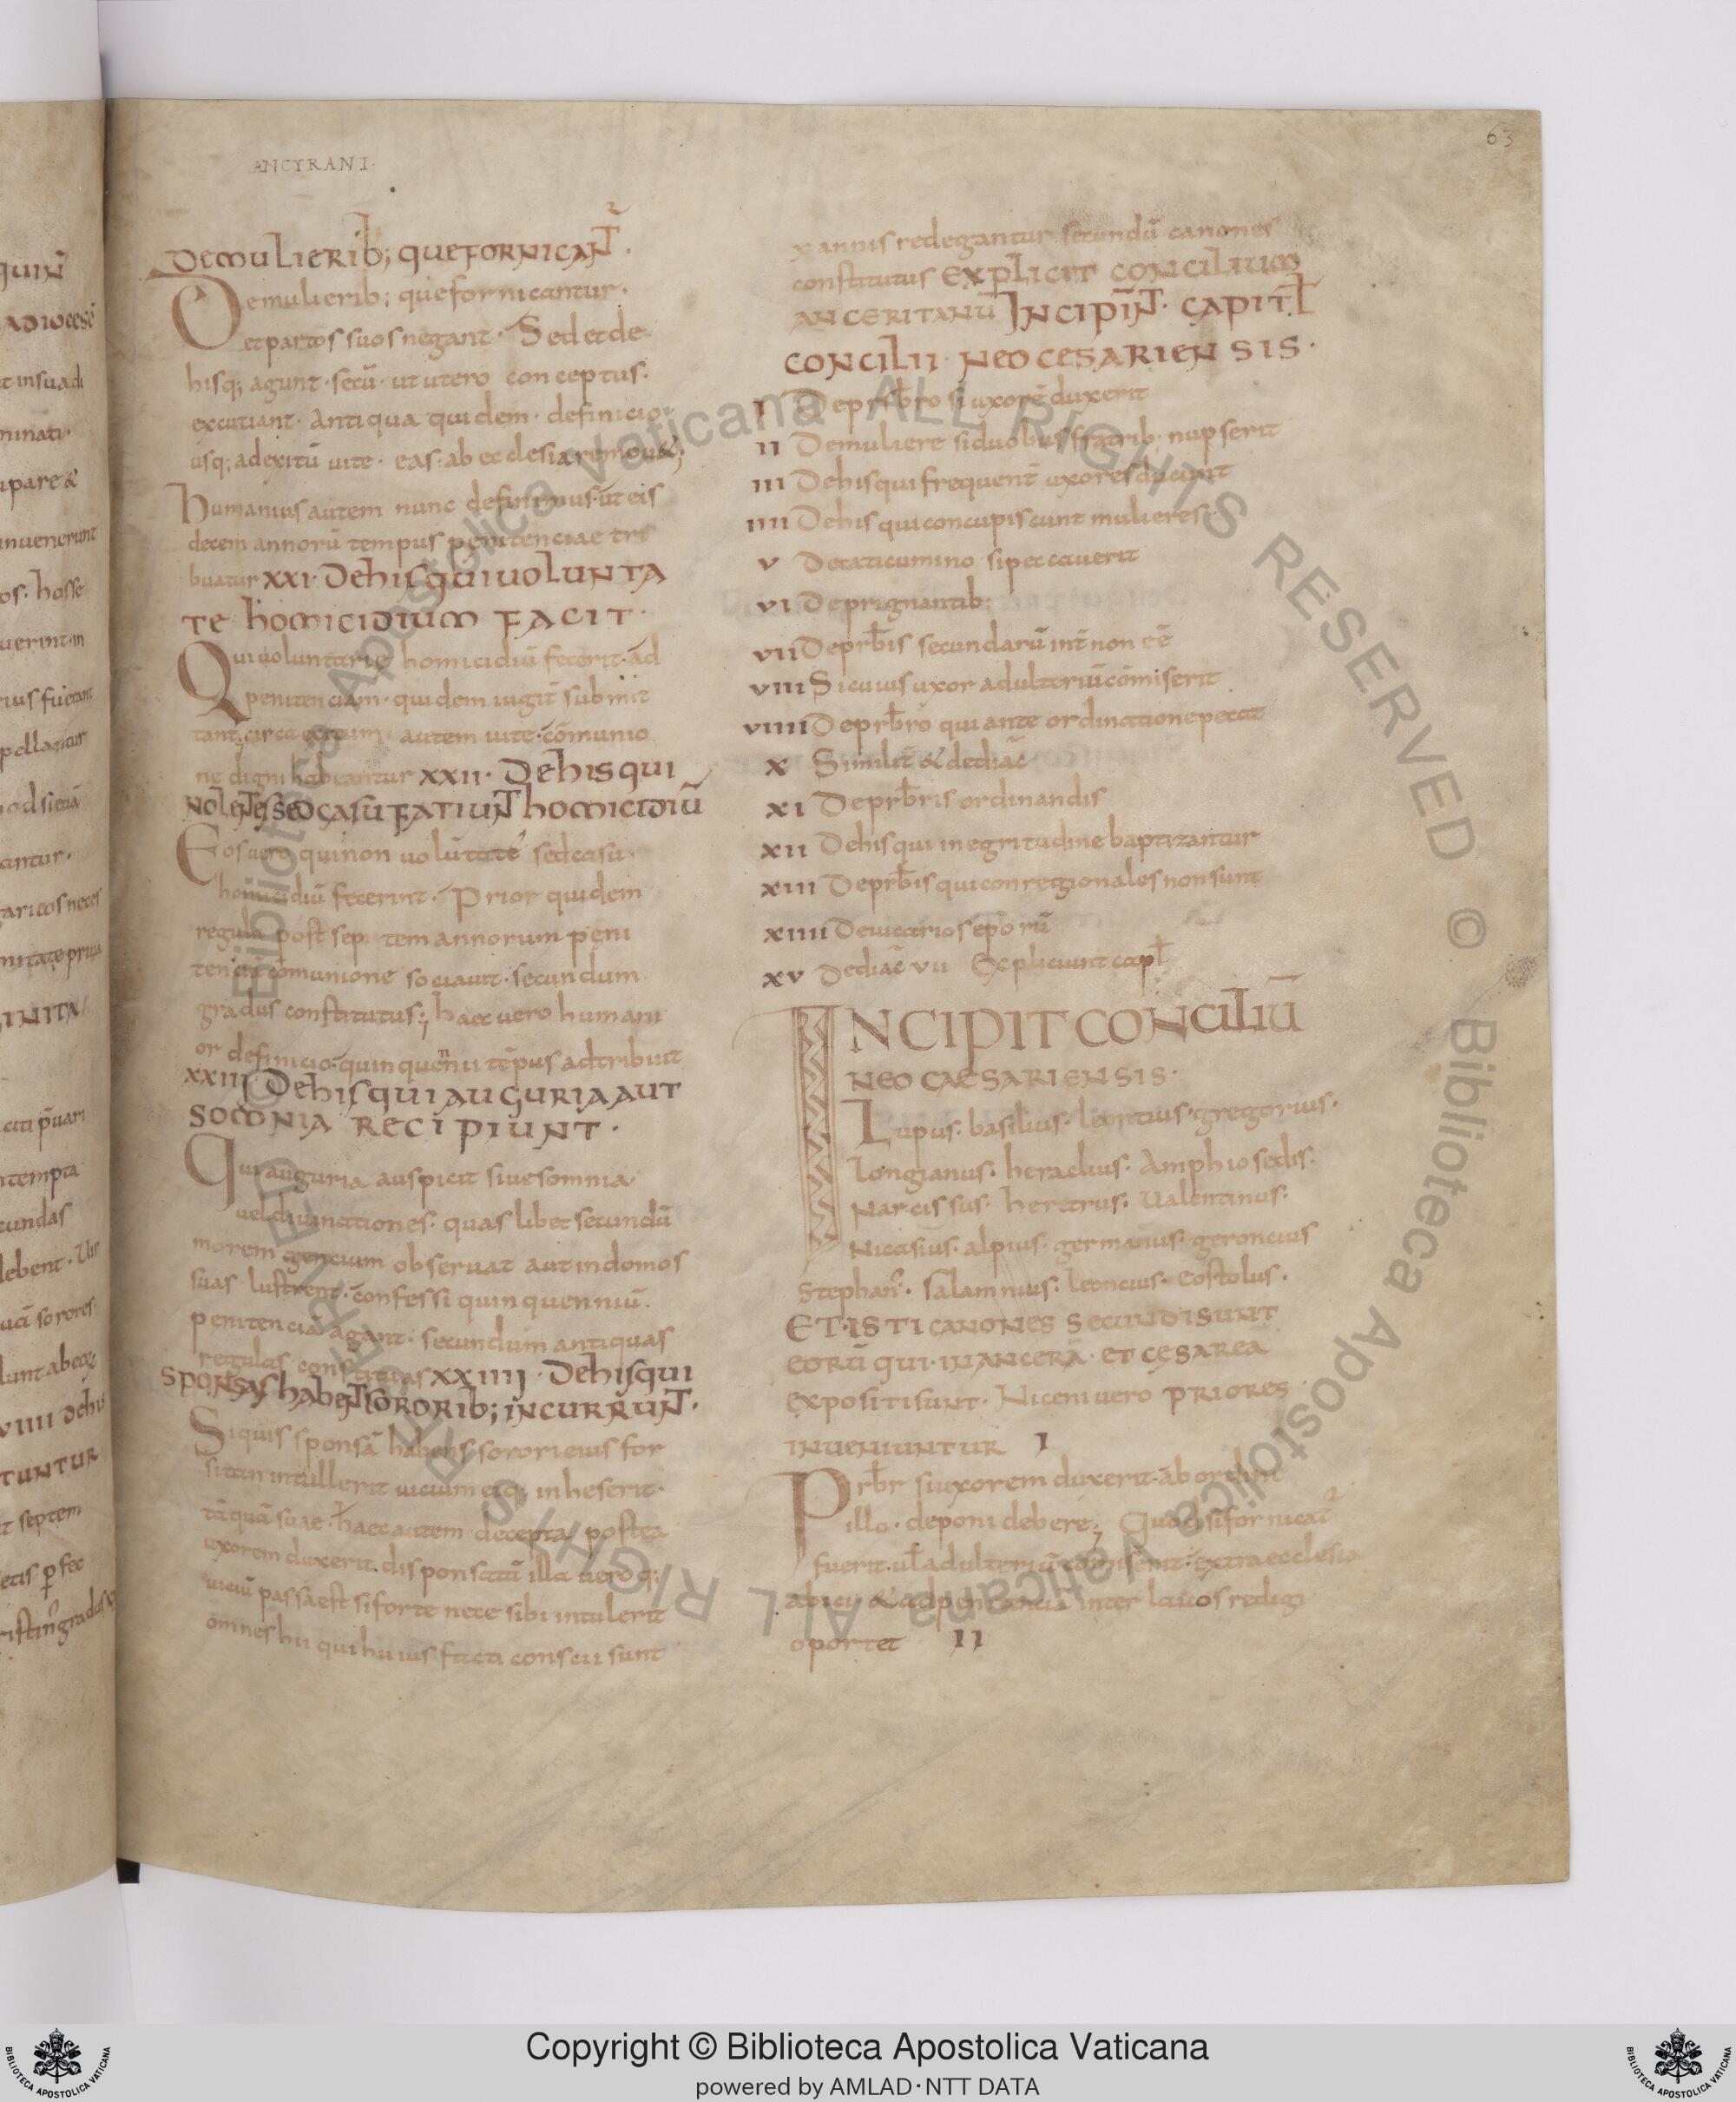 63
ANCYRANI·
Demulierib; quefornicanr̄.
Demulierib; quefornicantur·
et partos suos negant· Sed et de
hisq; agunt· secū· ut utero conceptus·
excutiant· Antiqua quidem· definicio·
usq; ad exitū uite· eas· ab ecclesia remou&;
humanius autem nunc definimus· ut eis
decem annorū tempus penitenciae tri
buatur XXI· Dehis qui uolunta
te homicidium facit·
Qui uoluntarie homicidiū fecerit· ad
penitenciam· quidem iugit̄ submit
tant; circa exitum· autem uite· cōmunio
ne digni habeantur XXII· Dehis qui
nolentes sed casu fatiunt homicidiū
Eos uero qui non uolūtate sed casu·
homicidiū fecerint· Prior quidem
regula post septem annorum peni
tenciā cōmunione sociauit· secundum
gradus constitutus; haec uero humani
or definicio· quinquennii tēpus adtribuit
XXIII Dehis qui auguria aut
somnia recipiunt·
Qui auguria auspicit siue somnia
uel diuinationes· quas libet secundū
morem gencium obseruat aut in domos
suas lustrent· confessi quinquenniū·
penitenciā agant· secundum antiquas
regulas constitutas XXIIII· Dehis qui
sponsas habent sororib; incurrunt·
Si quis sponsā habens sorori eius for
sitan intullerit uicium eiq; inheserit·
tāquā suae· haec autem decepta postea
uxorem duxerit· disponsatā illa uero q;
uiciū passa est si forte nece sibi intulerit
omnes hii qui huius facti conscii sunt
x annis redegantur secundū canones
constitutus explicit concilium
anceritanū Incipiūnt· capitl̄
concilii· neocesariensis·
I De prb̄ro si uxorē duxerit
II De muliere si duobus fratrib· nupserit
III Dehis qui frequent̄ uxores ducunt
IIII Dehis qui concupiscunt mulieres·
V De caticumino si peccauerit
VI De prignantib;
VII De prb̄is secundarū int̄ non eē
VIII Si cuius uxor adulteriū cōmiserit
VIIII De prb̄ro qui ante ordinationē peccat
X Similit̄ & de diac̄
XI De prb̄ris ordinandis
XII Dehis qui in egritudine baptizantur
XIII De prb̄is qui conregionales non sunt
XIIII De uicarios epōrū
XV De diac̄ VII Expliciunt capl̄
INCIPIT CONCILIŪ
NEOCAESARIENSIS·
Lupus· basilius· leontius· gregorius·
longianus· heraclius· Amphiosedis·
Narcissus· heretrus· Ualentinus·
Nicasius· alpius· germanus· geroncius
Stephan'· salamnius· leoncius· eostolus·
et isti canones secundi sunt
eorū qui· in ancera· et cesarea
expositi sunt· Niceni uero priores
inueniuntur I
Prb̄r si uxorem duxerit· ab ordine
illo· deponi debere; Quod si fornicat̄
fuerit· ul̄ adulteriū cōmiserit· extra ecclesia
abici & ad penitencia inter laicos redigi
oportet II
Copyright © Biblioteca Apostolica Vaticana
powered by AMLAD·NTT DATA